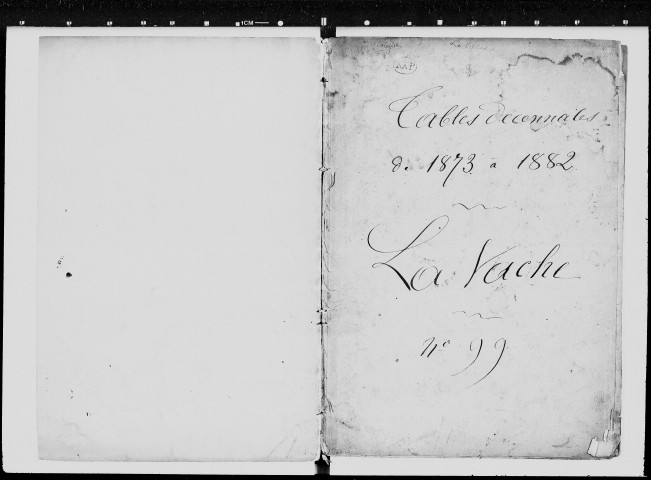 1CM
Tables décennales
de 1873 a 1882
La Vache
n° 99